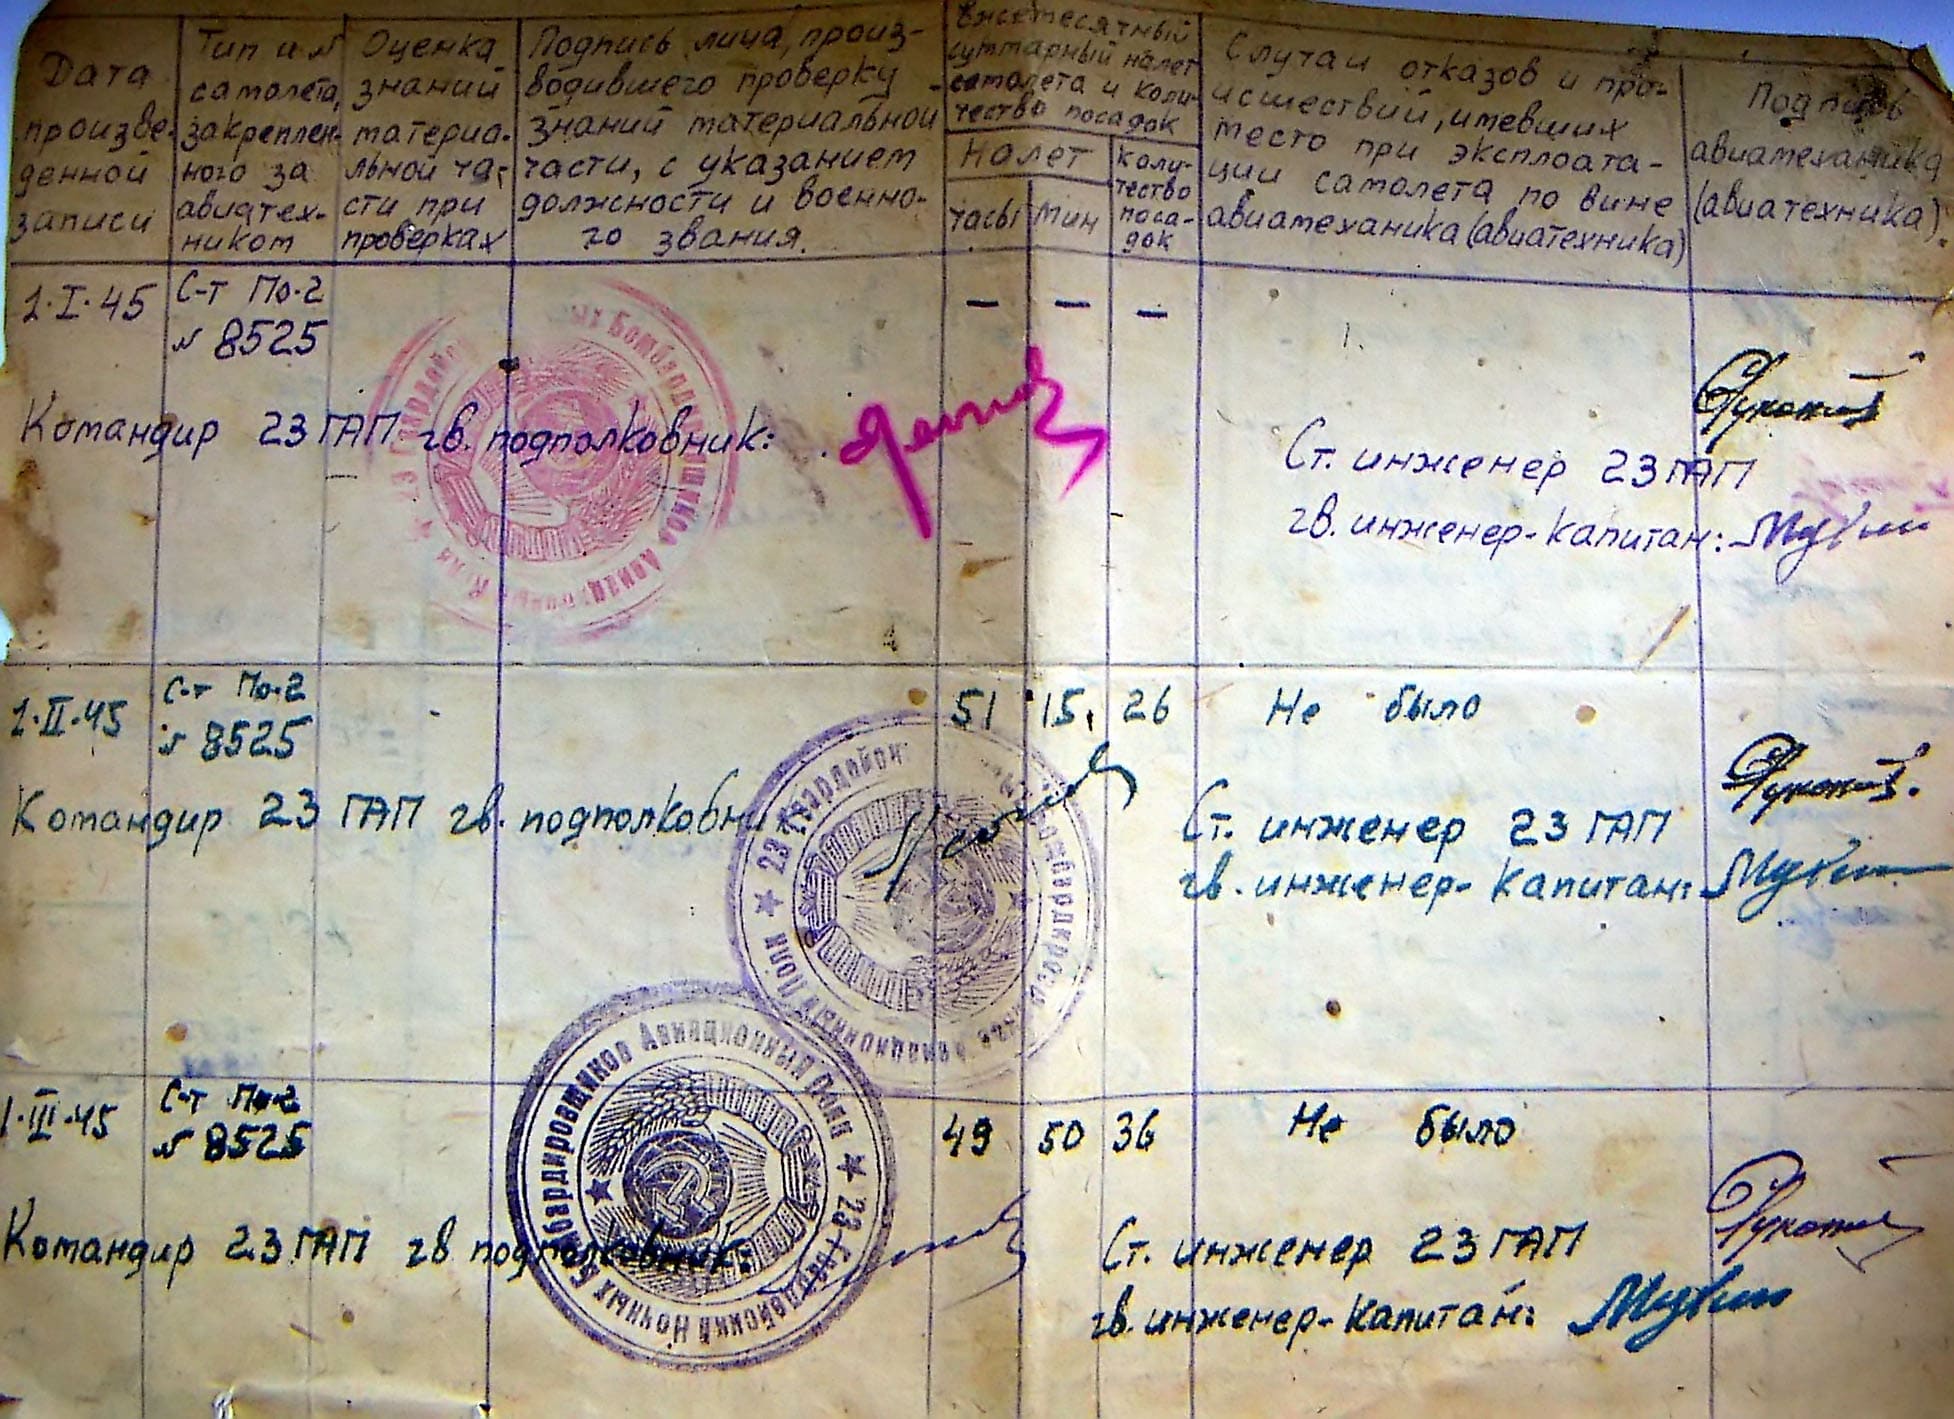 Дата
произве-
денной
записи
Тип и №
самолета,
закреплен-
ного за
авиатех-
ником
Оценка
знаний
материа-
льной ча-
сти при
проверках
Подпись лица, произ-
водившего проверку
знаний материальной
части, с указанием
должности и военно-
го звания.
суммарный налет
самолета и коли-
чество посадок
Налет
часы
мин
коли-
чество
поса-
док
Случаи отказов и про-
исшествий, имевших
место при эксплоата-
ции самолета по вине
авиамеханика (авиатехника)
Подпись
авиамеханика
(авиатехника).
1·I·45
С-т По-2
№ 8525
– – –
Командир 23 ГАП гв. подполковник:
Ст. инженер 23 ГАП
гв. инженер-капитан:
1·II·45
С-т По-2
№ 8525
51 15 26 Не было
Командир 23 ГАП гв. подполковник
Ст. инженер 23 ГАП
гв. инженер-капитан:
23 Гвардейск
Авиационный Полк
1·III·45
С-т По-2
№ 8525
49 50 36 Не было
Командир 23 ГАП гв подполковник:
Ст. инженер 23 ГАП
гв. инженер-капитан:
23 Гвардейский Ночных Бомбардировщиков Авиационный Полк